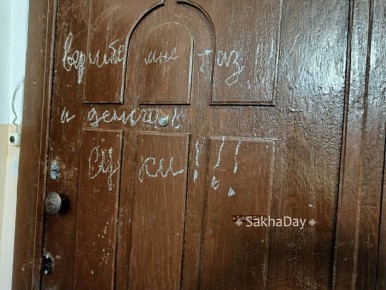 верните мне таз!!
и деньги!
Су ки!!!
SakhaDay